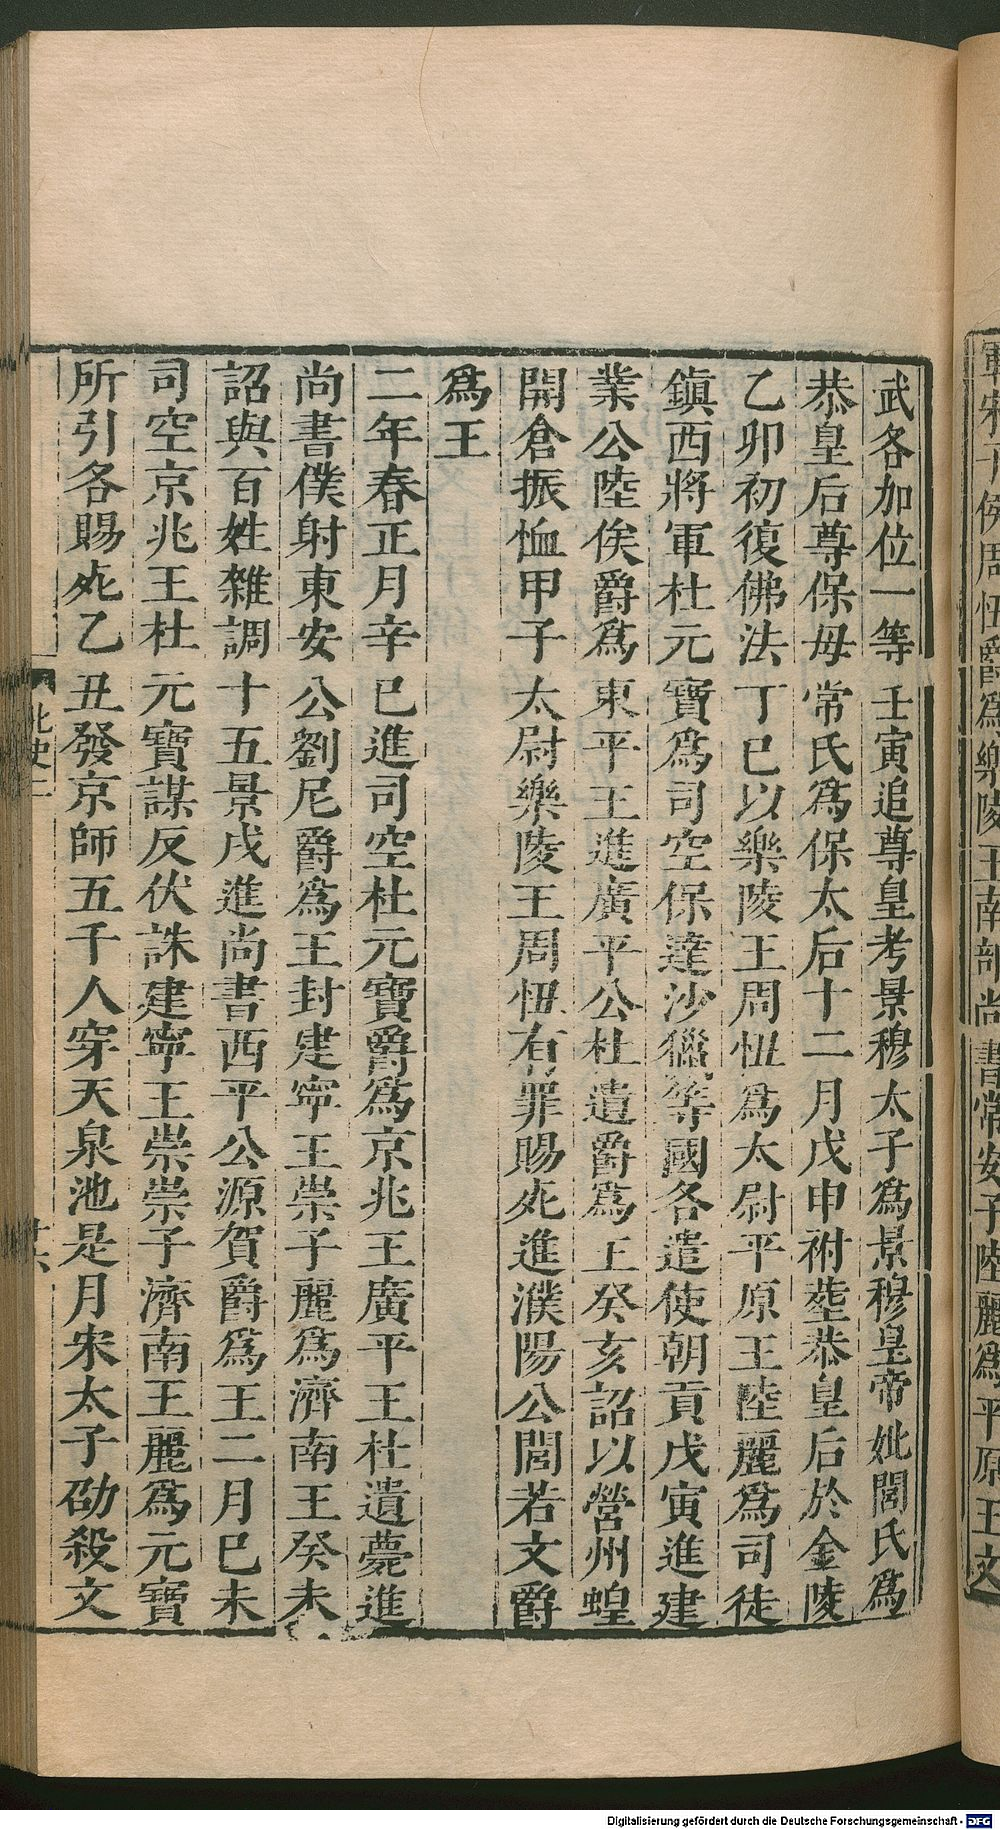 軍宋子侯周忸爵爲樂陵王南部尚書常安子陸麗爲平原王文
武各加位一等壬寅追尊皇考景穆太子爲景穆皇帝妣閭氏爲
恭皇后尊保母常氏爲保太后十二月戊申祔塟恭皇后於金陵
乙卯初復佛法丁巳以樂陵王周忸爲太尉平原王陸麗爲司徒
鎮西將軍杜元寶爲司空保達沙獵等國各遣使朝貢戊寅進建
業公陸俟爵爲東平王進廣平公杜遺爵爲王癸亥詔以營州蝗
開倉振恤甲子太尉樂陵王周忸有罪賜死進濮陽公閭若文爵
爲王
二年春正月辛巳進司空杜元寶爵爲京兆王廣平王杜遺薨進
尚書僕射東安公劉尼爵爲王封建寧王崇子麗爲濟南王癸未
詔與百姓雜調十五景戌進尚書西平公源賀爵爲王二月巳未
司空京兆王杜元寶謀反伏誅建寧王崇崇子濟南王麗爲元寶
所引各賜死乙丑發京師五千人穿天泉池是月宋太子劭殺文
北史二
廿六
Digitalisierung gefördert durch die Deutsche Forschungsgemeinschaft - DFG